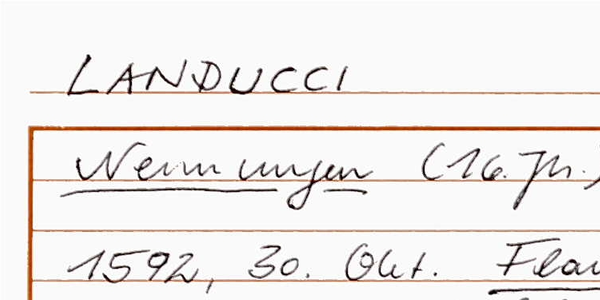 LANDUCCI
Nennungen (16. Jh.)
1592, 30. Okt.